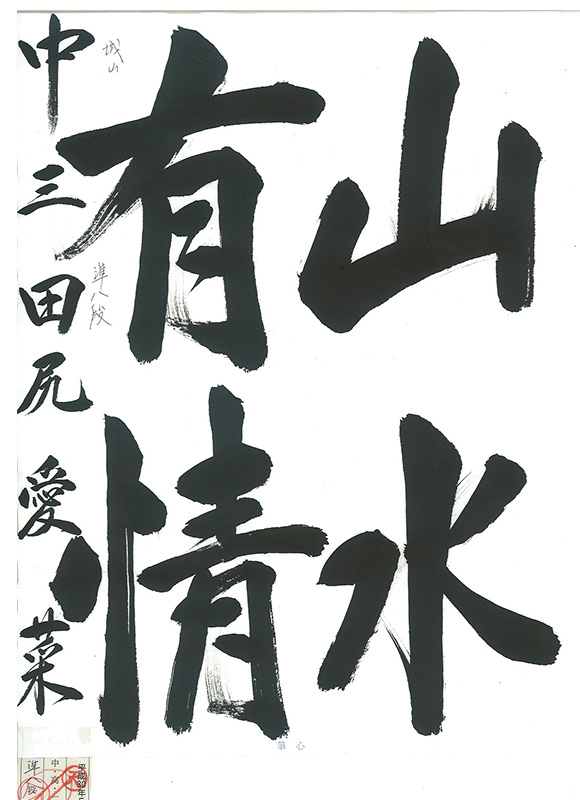 山水
有情
中三 田尻愛菜
城山
準八段
心筆
平成30年
中・高・
準八段